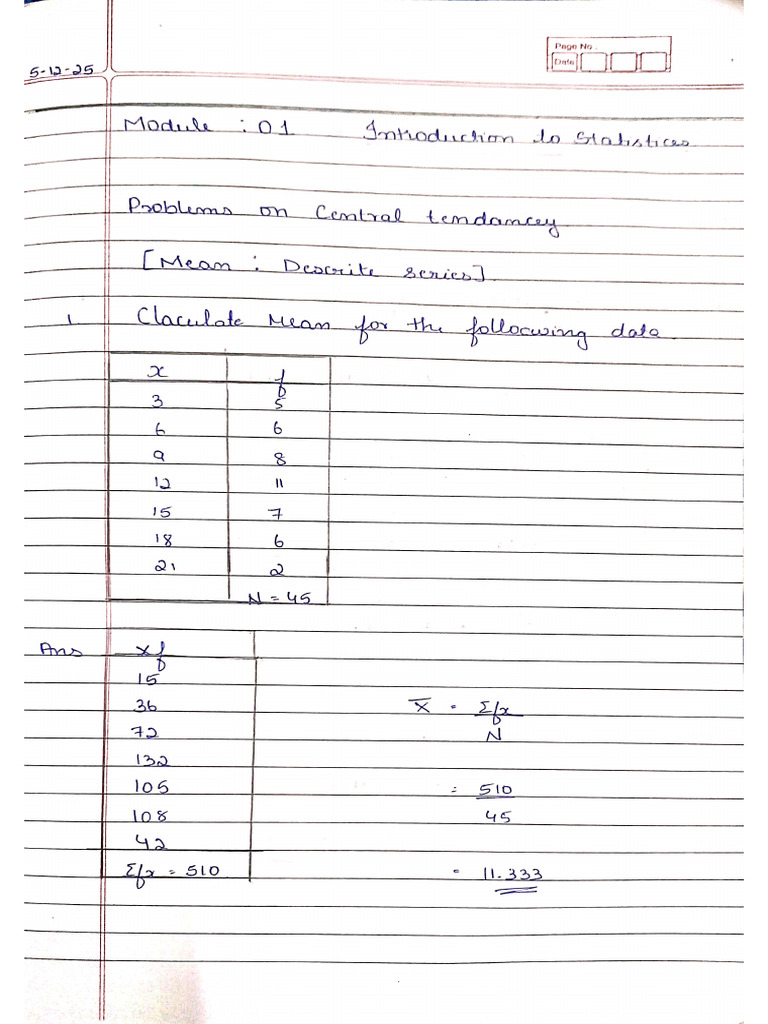 Page No.
Date
5-12-25
Module : 01 Introduction to Statistices
Problems on Central tendancey
[Mean : Descrite series]
1 Claculate Mean for the following data.
x f
3 5
6 6
9 8
12 11
15 7
18 6
21 2
N = 45
Ans xf
15
36 X̅ = Σfx
72 N
132
105 = 510
108 45
42
Σfx = 510 = 11.333